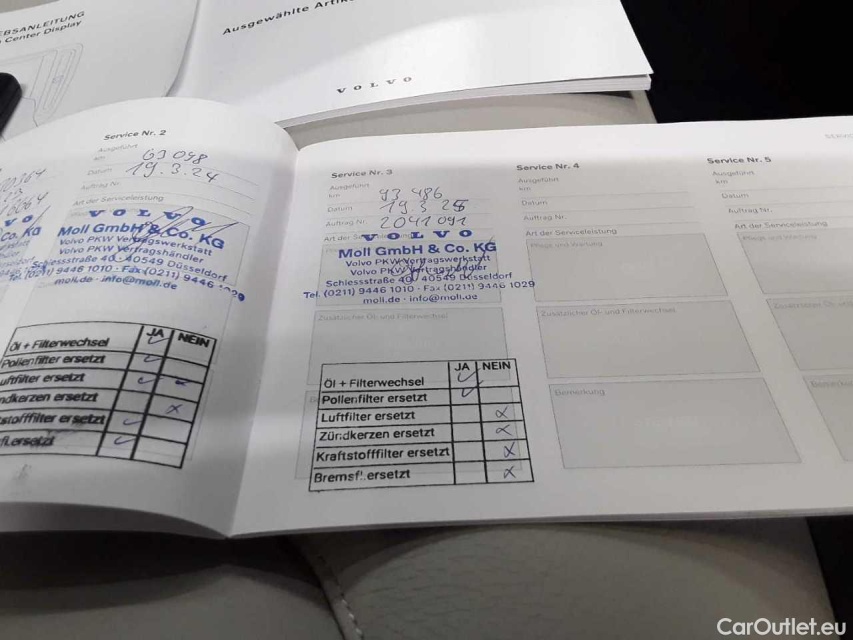 EBSANLEITUNG
Center Display
Ausgewählte Artik
VOLVO
Service Nr. 2
Ausgeführt
km 69 098
Datum 19.3.24
Auftrag Nr.
Art der Serviceleistung
VOLVO
Moll GmbH & Co. KG
Volvo PKW Vertragswerkstatt
Volvo PKW Vertragshändler
Schiessstraße 40 · 40549 Düsseldorf
Tel. (0211) 9446 1010 · Fax (0211) 9446 1029
moll.de · info@moll.de
JA NEIN
Öl + Filterwechsel
Pollenfilter ersetzt
uftfilter ersetzt
ndkerzen ersetzt
stofffilter ersetzt
fl.ersetzt
Service Nr. 3
Ausgeführt
km 93 486
Datum 19.3.25
Auftrag Nr. 2041 091
Art der Se
VOLVO
Moll GmbH & Co. KG
Volvo PKW Vertragswerkstatt
Volvo PKW Vertragshändler
Schiessstraße 40 · 40549 Düsseldorf
Tel. (0211) 9446 1010 · Fax (0211) 9446 1029
moll.de · info@moll.de
Zusätzlicher Öl- und Filterwechsel
JA NEIN
Öl + Filterwechsel
Pollenfilter ersetzt
Luftfilter ersetzt
Zündkerzen ersetzt
Kraftstofffilter ersetzt
Bremsfl.ersetzt
Service Nr. 4
Ausgeführt
km
Datum
Auftrag Nr.
Art der Serviceleistung
Pflege und Wartung
Zusätzlicher Öl- und Filterwechsel
Bemerkung
Service Nr. 5
Ausgeführt
km
Datum
Auftrag Nr.
Art der Serviceleistung
Pflege und Wartung
CarOutlet.eu